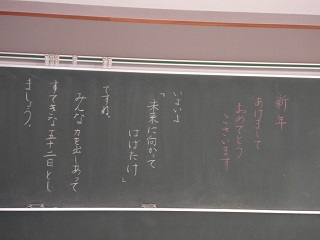 新年
あけまして
おめでとう
ございます
いよいよ
「未来に向かって
はばたけ」
ですね。
みんな力を出しあって
すてきな五十二日とし
ましょう。